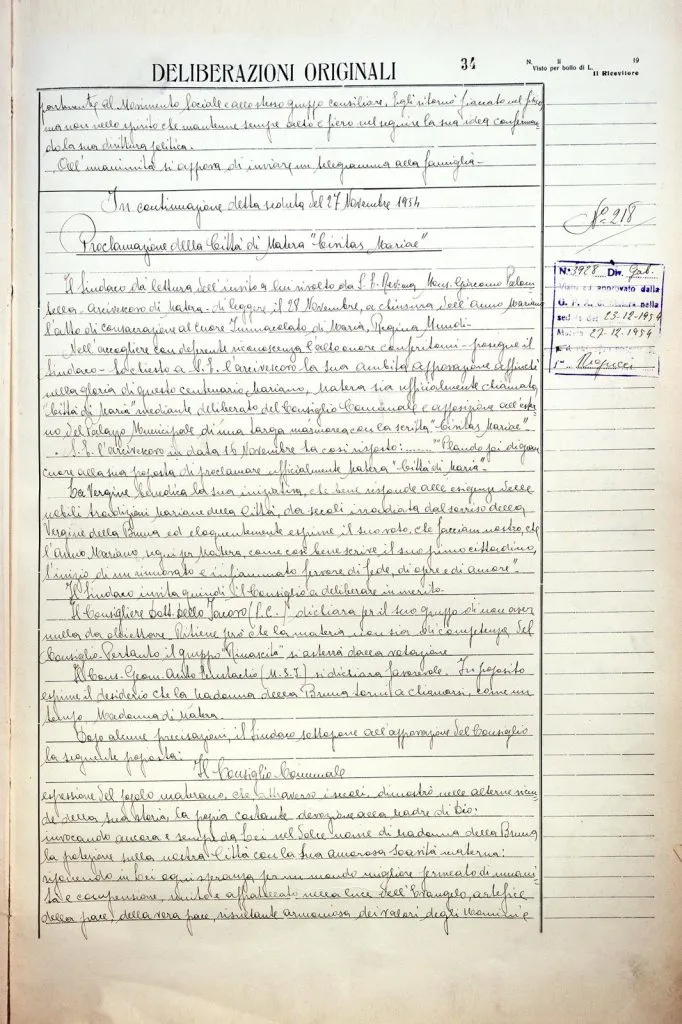 DELIBERAZIONI ORIGINALI
34
N. Il 19
Visto per bollo di L.
Il Ricevitore
al Movimento Sociale e allo stesso gruppo consiliare. Egli ritornò fiaccato nel fisico
ma non nello spirito che mantenne sempre alto e fiero nel seguire la sua idea conferman-
do la sua dirittura politica.
All'unanimità si approva di inviare un telegramma alla famiglia -
In continuazione detta seduta del 27 Novembre 1954
Nº 218
Proclamazione della Città di Matera "Civitas Mariae"
N. 3928 Div. Gab.
Visto ed approvato dalla
G. P. A. di Matera nella
seduta del 23-12-1954
Matera 27-12-1954
Il Sindaco dà lettura dell'invito a lui rivolto da S. E. Rev.ma Mons. Giacomo Palom-
bella - Arcivescovo di Matera - di leggere il 28 Novembre, a chiusura dell'anno Mariano
l'atto di consacrazione al Cuore Immacolato di Maria, Regina Mundi -
Nell'accogliere con deferente riconoscenza l'alto onore conferitomi - prosegue il
Sindaco - ho chiesto a S. E. l'arcivescovo la sua ambita approvazione affinché
nella gloria di questo centenario Mariano, Matera sia ufficialmente chiamata
"Città di Maria" mediante deliberato del Consiglio Comunale e apposizione all'ester-
no del Palazzo Municipale di una targa marmorea con la scritta "Civitas Mariae".
S. E. l'arcivescovo in data 16 Novembre ha così risposto: ...... "Plaudo poi di gran
cuore alla sua proposta di proclamare ufficialmente Matera "Città di Maria".
La Vergine benedica la sua iniziativa, che bene risponde alle esigenze delle
nobili tradizioni mariane della Città, da secoli irradiata dal sorriso della
Vergine della Bruna ed eloquentemente esprime il suo voto, che facciam nostro, che
l'Anno Mariano, segni per Matera, come così bene scrive il suo primo cittadino,
l'inizio di un rinnovato e infiammato fervore di fede, di opre e di amore".
Il Sindaco invita quindi il Consiglio a deliberare in merito.
Il Consigliere Dott. Dello Jacovo (P.C.) dichiara per il suo gruppo di non aver
nulla da obiettare. Ritiene però che la materia non sia di competenza del
Consiglio. Pertanto il gruppo "Rinascita" si asterrà dalla votazione
Il Cons. Geom. (M.S.I.) si dichiara favorevole. In proposito
esprime il desiderio che la Madonna della Bruna torni a chiamarsi, come un
tempo Madonna di Matera.
Dopo alcune precisazioni, il Sindaco sottopone all'approvazione del Consiglio
la seguente proposta:
Il Consiglio Comunale
espressione del popolo materano, che, attraverso i secoli, dimostrò nelle alterne vicen-
de della sua storia, la propria costante devozione alla Madre di Dio:
invocando ancora e sempre da Lei nel dolce nome di Madonna della Bruna
la protezione sulla nostra Città con la Sua amorosa soavità materna:
riponendo in Lei ogni speranza per un mondo migliore permeato di umani-
tà e comprensione, unito e affratellato nella luce dell'Evangelo, artefice
della pace, della vera pace, risultante armoniosa dei valori degli Uomini e